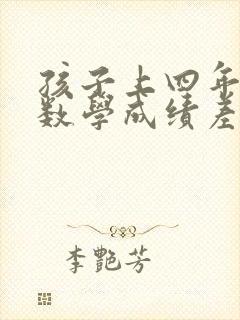 孩子上四年
数學成績差
李艷芳